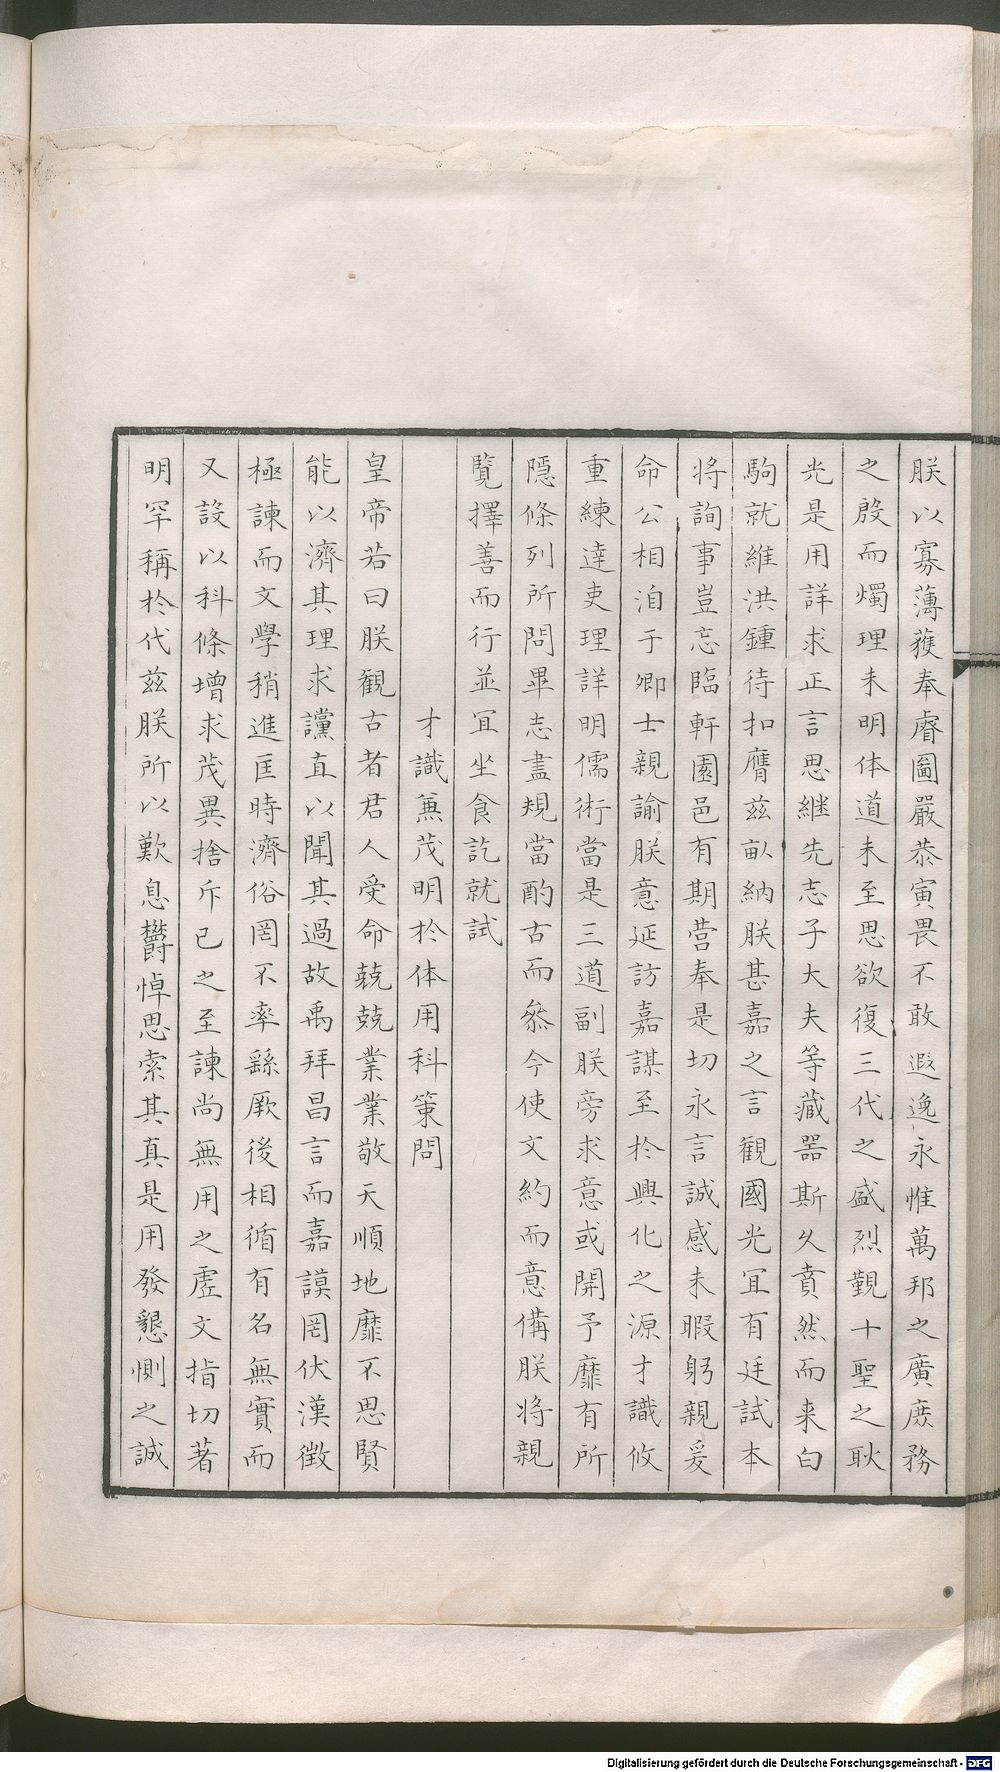 朕以寡薄獲奉睿圖嚴恭寅畏不敢遐逸永惟萬邦之廣庶務
之殷而燭理未明体道未至思欲復三代之盛烈覲十聖之耿
光是用詳求正言思継先志子大夫等藏器斯久賁然而来白
駒就維洪鍾待扣膺兹畝納朕甚嘉之言觀國光冝有廷試本
将詢事豈忘臨軒園邑有期營奉是切永言誠感未暇躬親爰
命公相洎于卿士親諭朕意延訪嘉謀至於興化之源才識攸
重練達吏理詳明儒術當是三道副朕旁求意或開予靡有所
隠條列所問畢志盡規當酌古而叅今使文約而意備朕将親
覽擇善而行並冝坐食訖就試
才識兼茂明於体用科策問
皇帝若曰朕觀古者君人受命兢兢業業敬天順地靡不思賢
能以濟其理求讜直以聞其過故禹拜昌言而嘉謨罔伏漢徴
極諫而文學稍進匡時濟俗罔不率繇厥後相循有名無實而
又設以科條增求茂異捨斥已之至諫尚無用之虚文指切著
明罕稱於代兹朕所以歎息欝悼思索其真是用發懇惻之誠
Digitalisierung gefördert durch die Deutsche Forschungsgemeinschaft - DFG